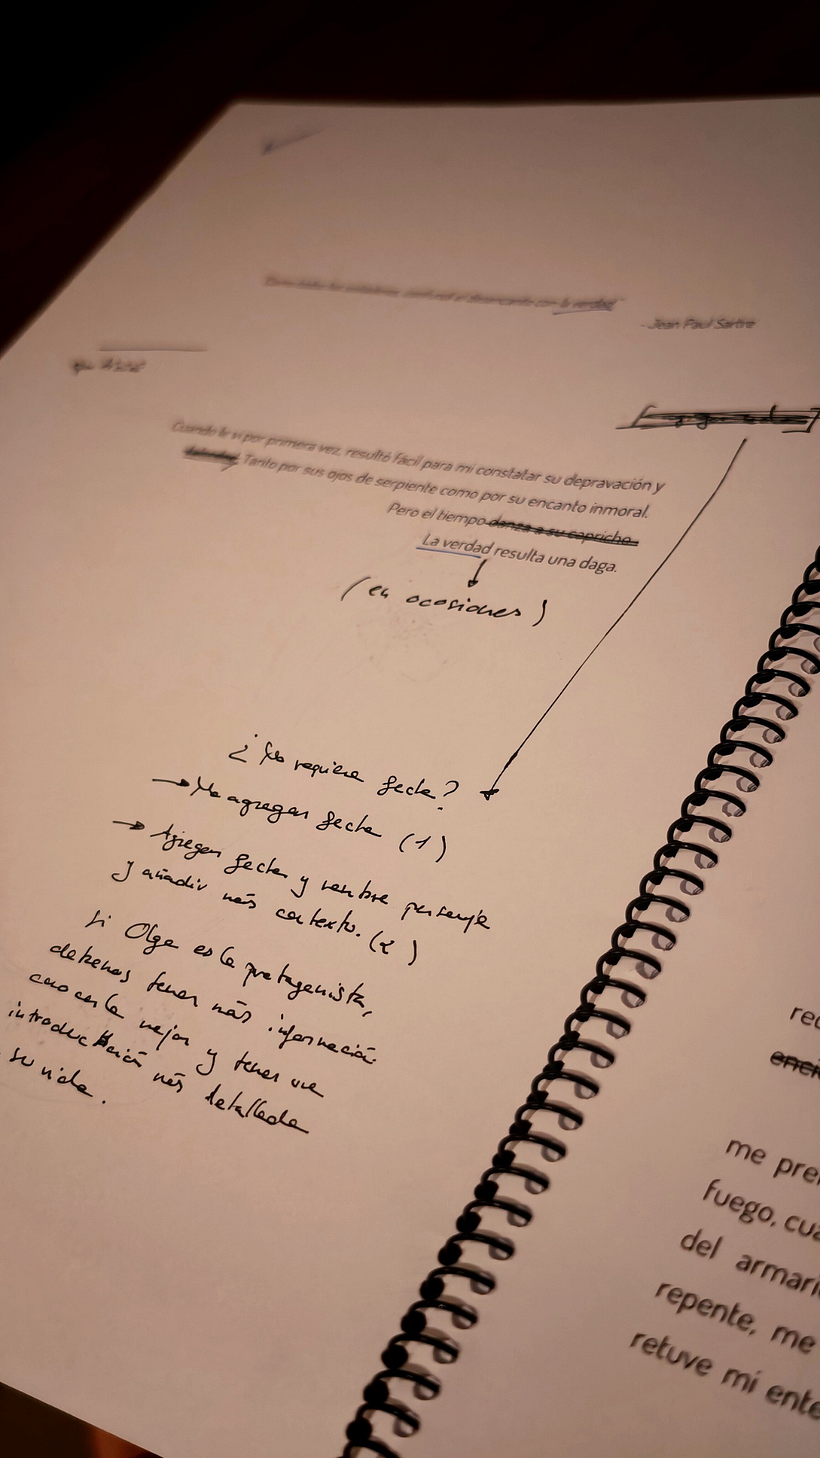 con la verdad"
- Jean Paul Sartre
Cuando le vi por primera vez, resultó fácil para mi constatar su depravación y
Tanto por sus ojos de serpiente como por su encanto inmoral.
Pero el tiempo danza a su capricho.
La verdad resulta una daga.
(en ocasiones)
¿No requiere fecha?
→ No agregar fecha (1)
→ Agregar fecha y nombre personaje
y añadir más contexto. (2)
Si Olga es la protagonista,
debemos tener más información
conocerla mejor y tener una
introducción más detallada
su vida.
rec
enci
me pre
fuego, cua
del armari
repente, me
retuve mi ente